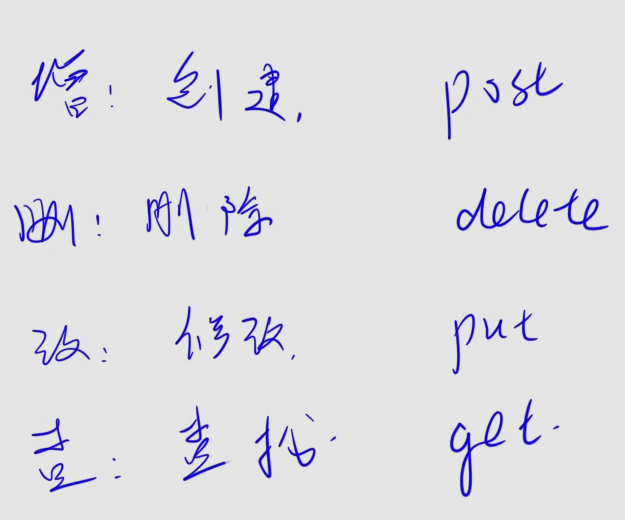 增: 创建, post
删: 删除 delete
改: 修改, put
查: 查找. get.